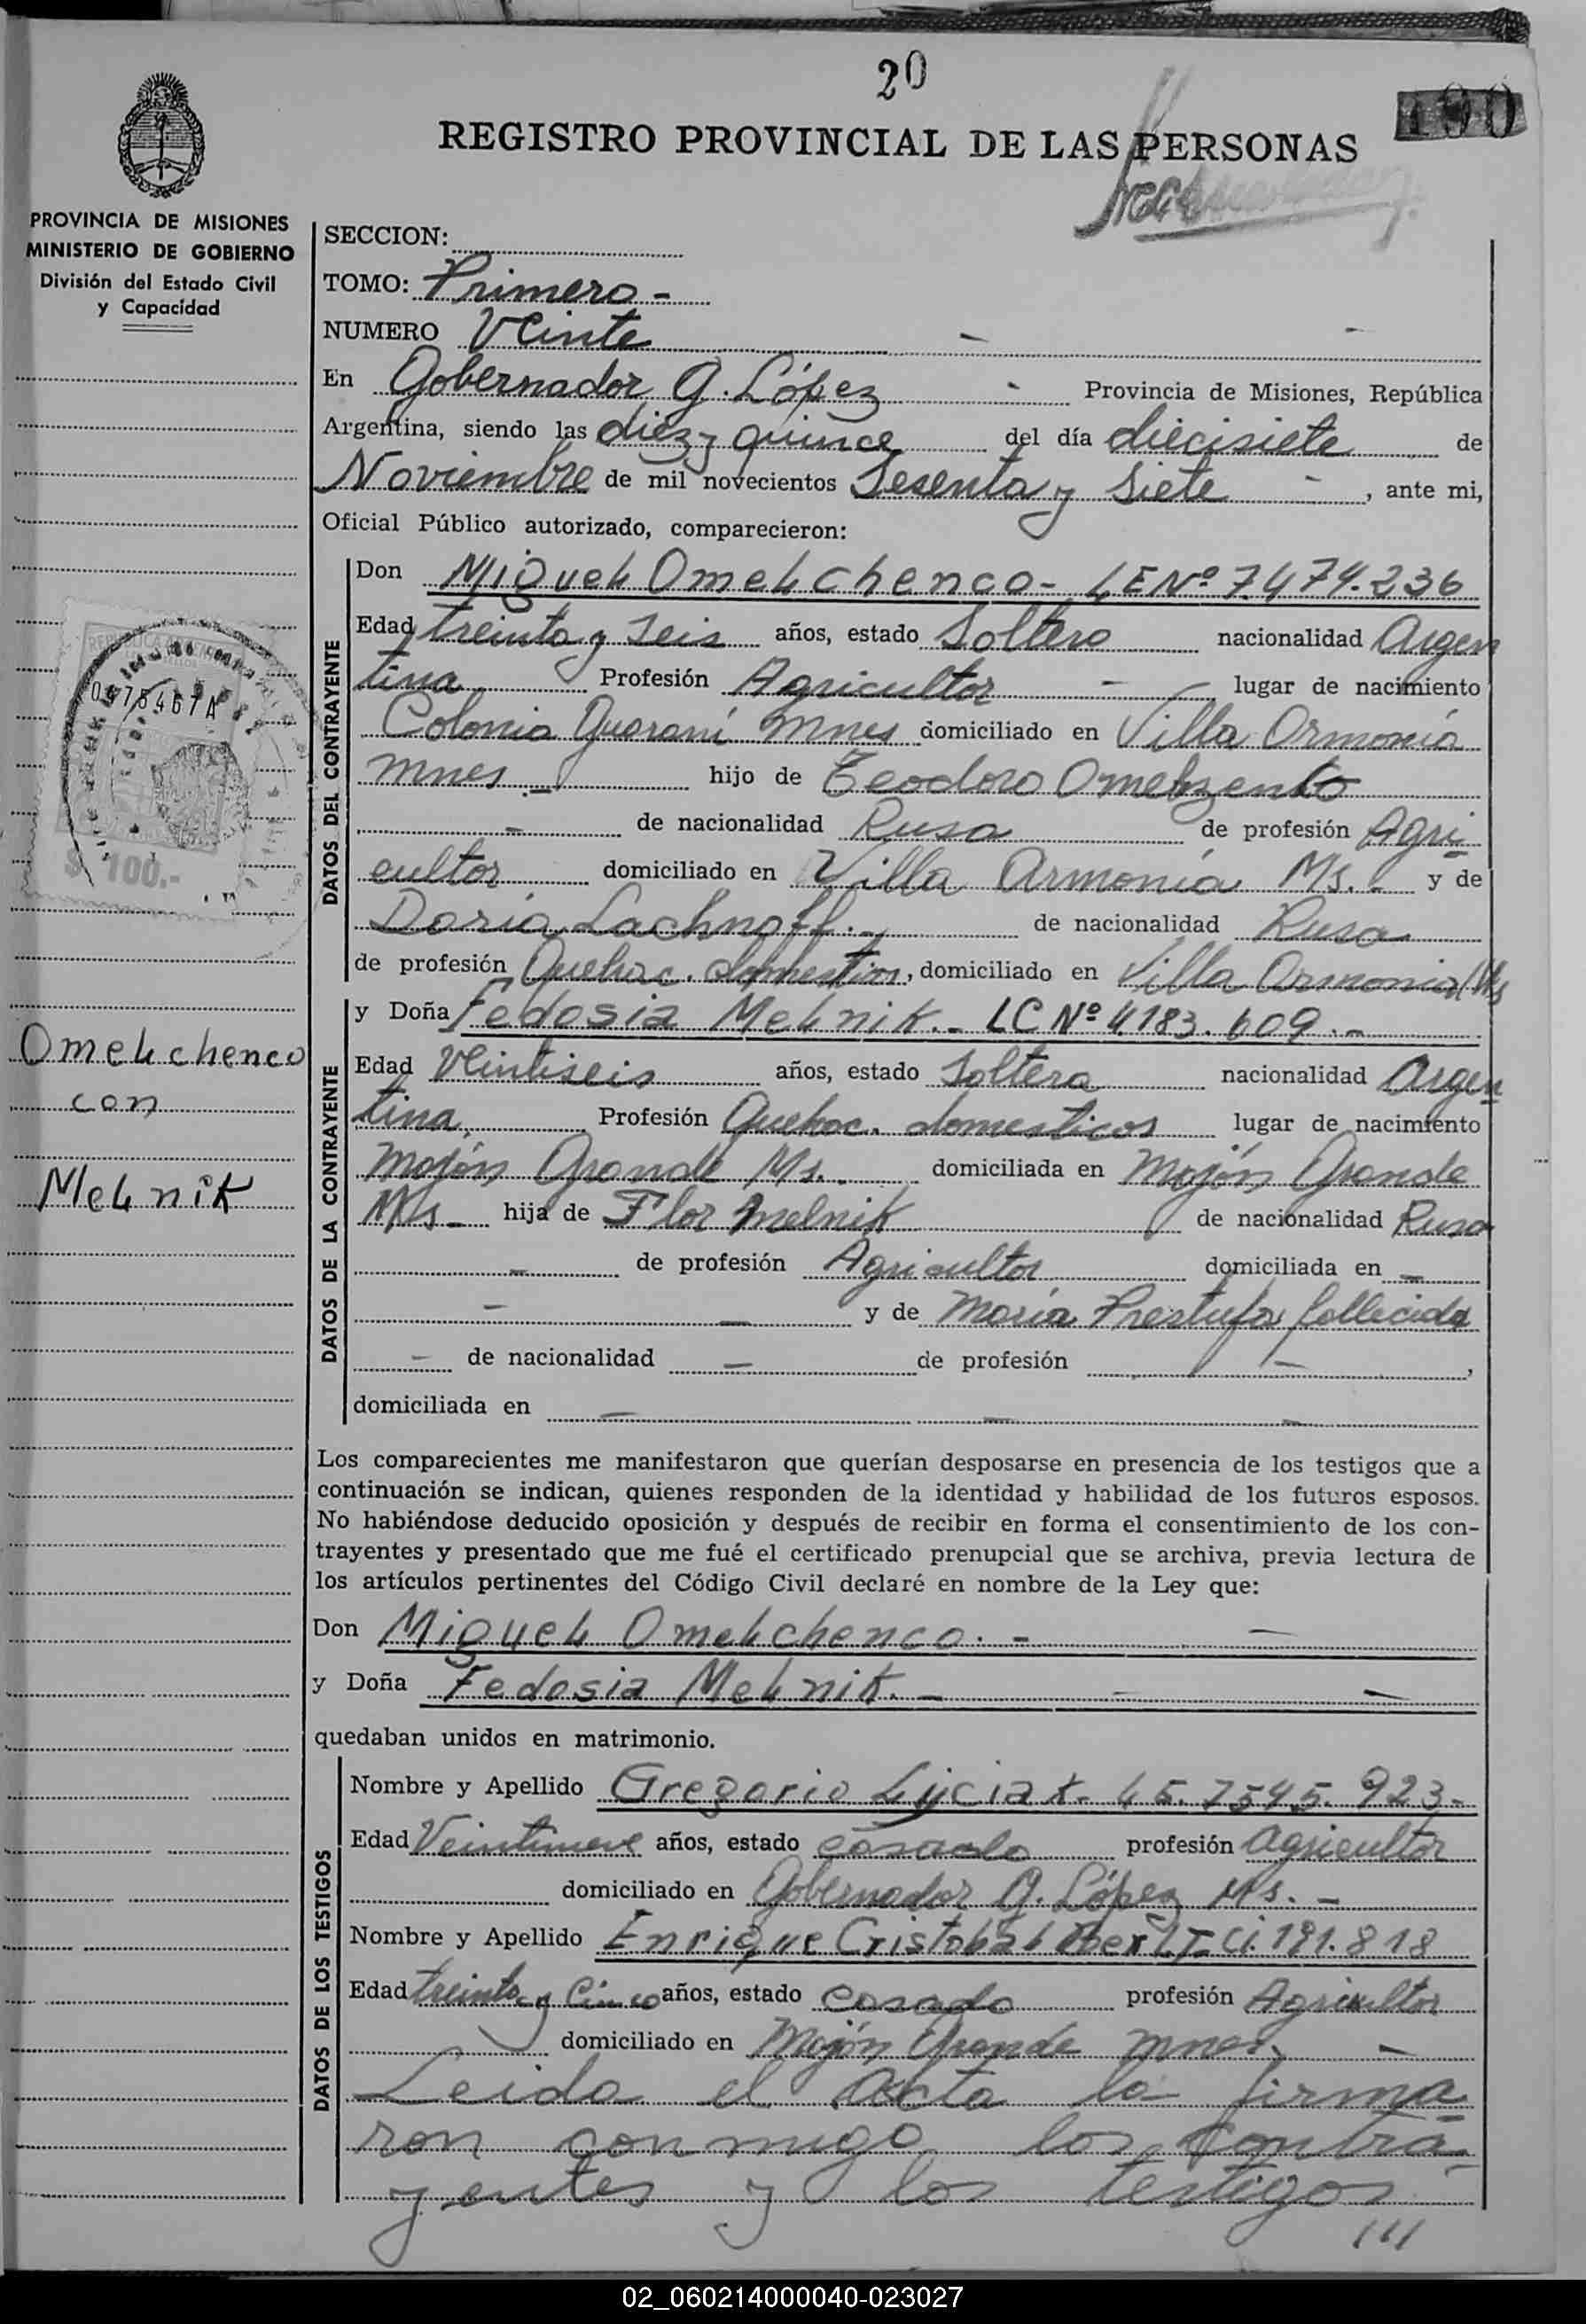 20
100
REGISTRO PROVINCIAL DE LAS PERSONAS
PROVINCIA DE MISIONES
MINISTERIO DE GOBIERNO
División del Estado Civil
y Capacidad
SECCION:
TOMO: Primero -
NUMERO Veinte
En Gobernador G. López - Provincia de Misiones, República
Argentina, siendo las diez y quince del día diecisiete de
Noviembre de mil novecientos Sesenta y Siete - , ante mi,
Oficial Público autorizado, comparecieron:
DATOS DEL CONTRAYENTE
Don Miguel Omelchenco - LE Nº 7.474.236
Edad treinta y seis años, estado Soltero nacionalidad Argen
tina Profesión Agricultor - lugar de nacimiento
Colonia Guaraní Mnes domiciliado en Villa Ormonía
Mnes - hijo de Teodoro Omelzenko
- de nacionalidad Rusa de profesión Agri
cultor domiciliado en Villa Armonía Ms. - y de
Daria Lachnoff. - de nacionalidad Rusa
de profesión Quehac. domesticos, domiciliado en Villa Ormonia Ms
DATOS DE LA CONTRAYENTE
y Doña Fedosia Melnik. - LC Nº 4.183.609. -
Edad Veintiseis años, estado Soltera nacionalidad Argen
tina, Profesión Quehac. domesticos lugar de nacimiento
Mojón Grande Ms. domiciliada en Mojón Grande
Ms - hija de Flor Melnik de nacionalidad Rusa
- de profesión Agricultor domiciliada en -
- - y de María Prestupa fallecida
- de nacionalidad - de profesión - ,
domiciliada en - - -
Omelchenco
con
Melnik
Los comparecientes me manifestaron que querían desposarse en presencia de los testigos que a
continuación se indican, quienes responden de la identidad y habilidad de los futuros esposos.
No habiéndose deducido oposición y después de recibir en forma el consentimiento de los con-
trayentes y presentado que me fué el certificado prenupcial que se archiva, previa lectura de
los artículos pertinentes del Código Civil declaré en nombre de la Ley que:
Don Miguel Omelchenco. - -
y Doña Fedosia Melnik. - - -
quedaban unidos en matrimonio.
DATOS DE LOS TESTIGOS
Nombre y Apellido Gregorio 7545.923-
Edad Veintinueve años, estado casado profesión agricultor
domiciliado en Gobernador G. López Ms. -
Nombre y Apellido Enrique Cristobal Ci. 191.818
Edad treinta y Cinco años, estado Casado profesión Agricultor
domiciliado en Mojón Grande Mnes. -
Leida el Acta la firma-
ron conmigo los contra-
yentes y los testigos
///
$ 100.-
02_060214000040-023027